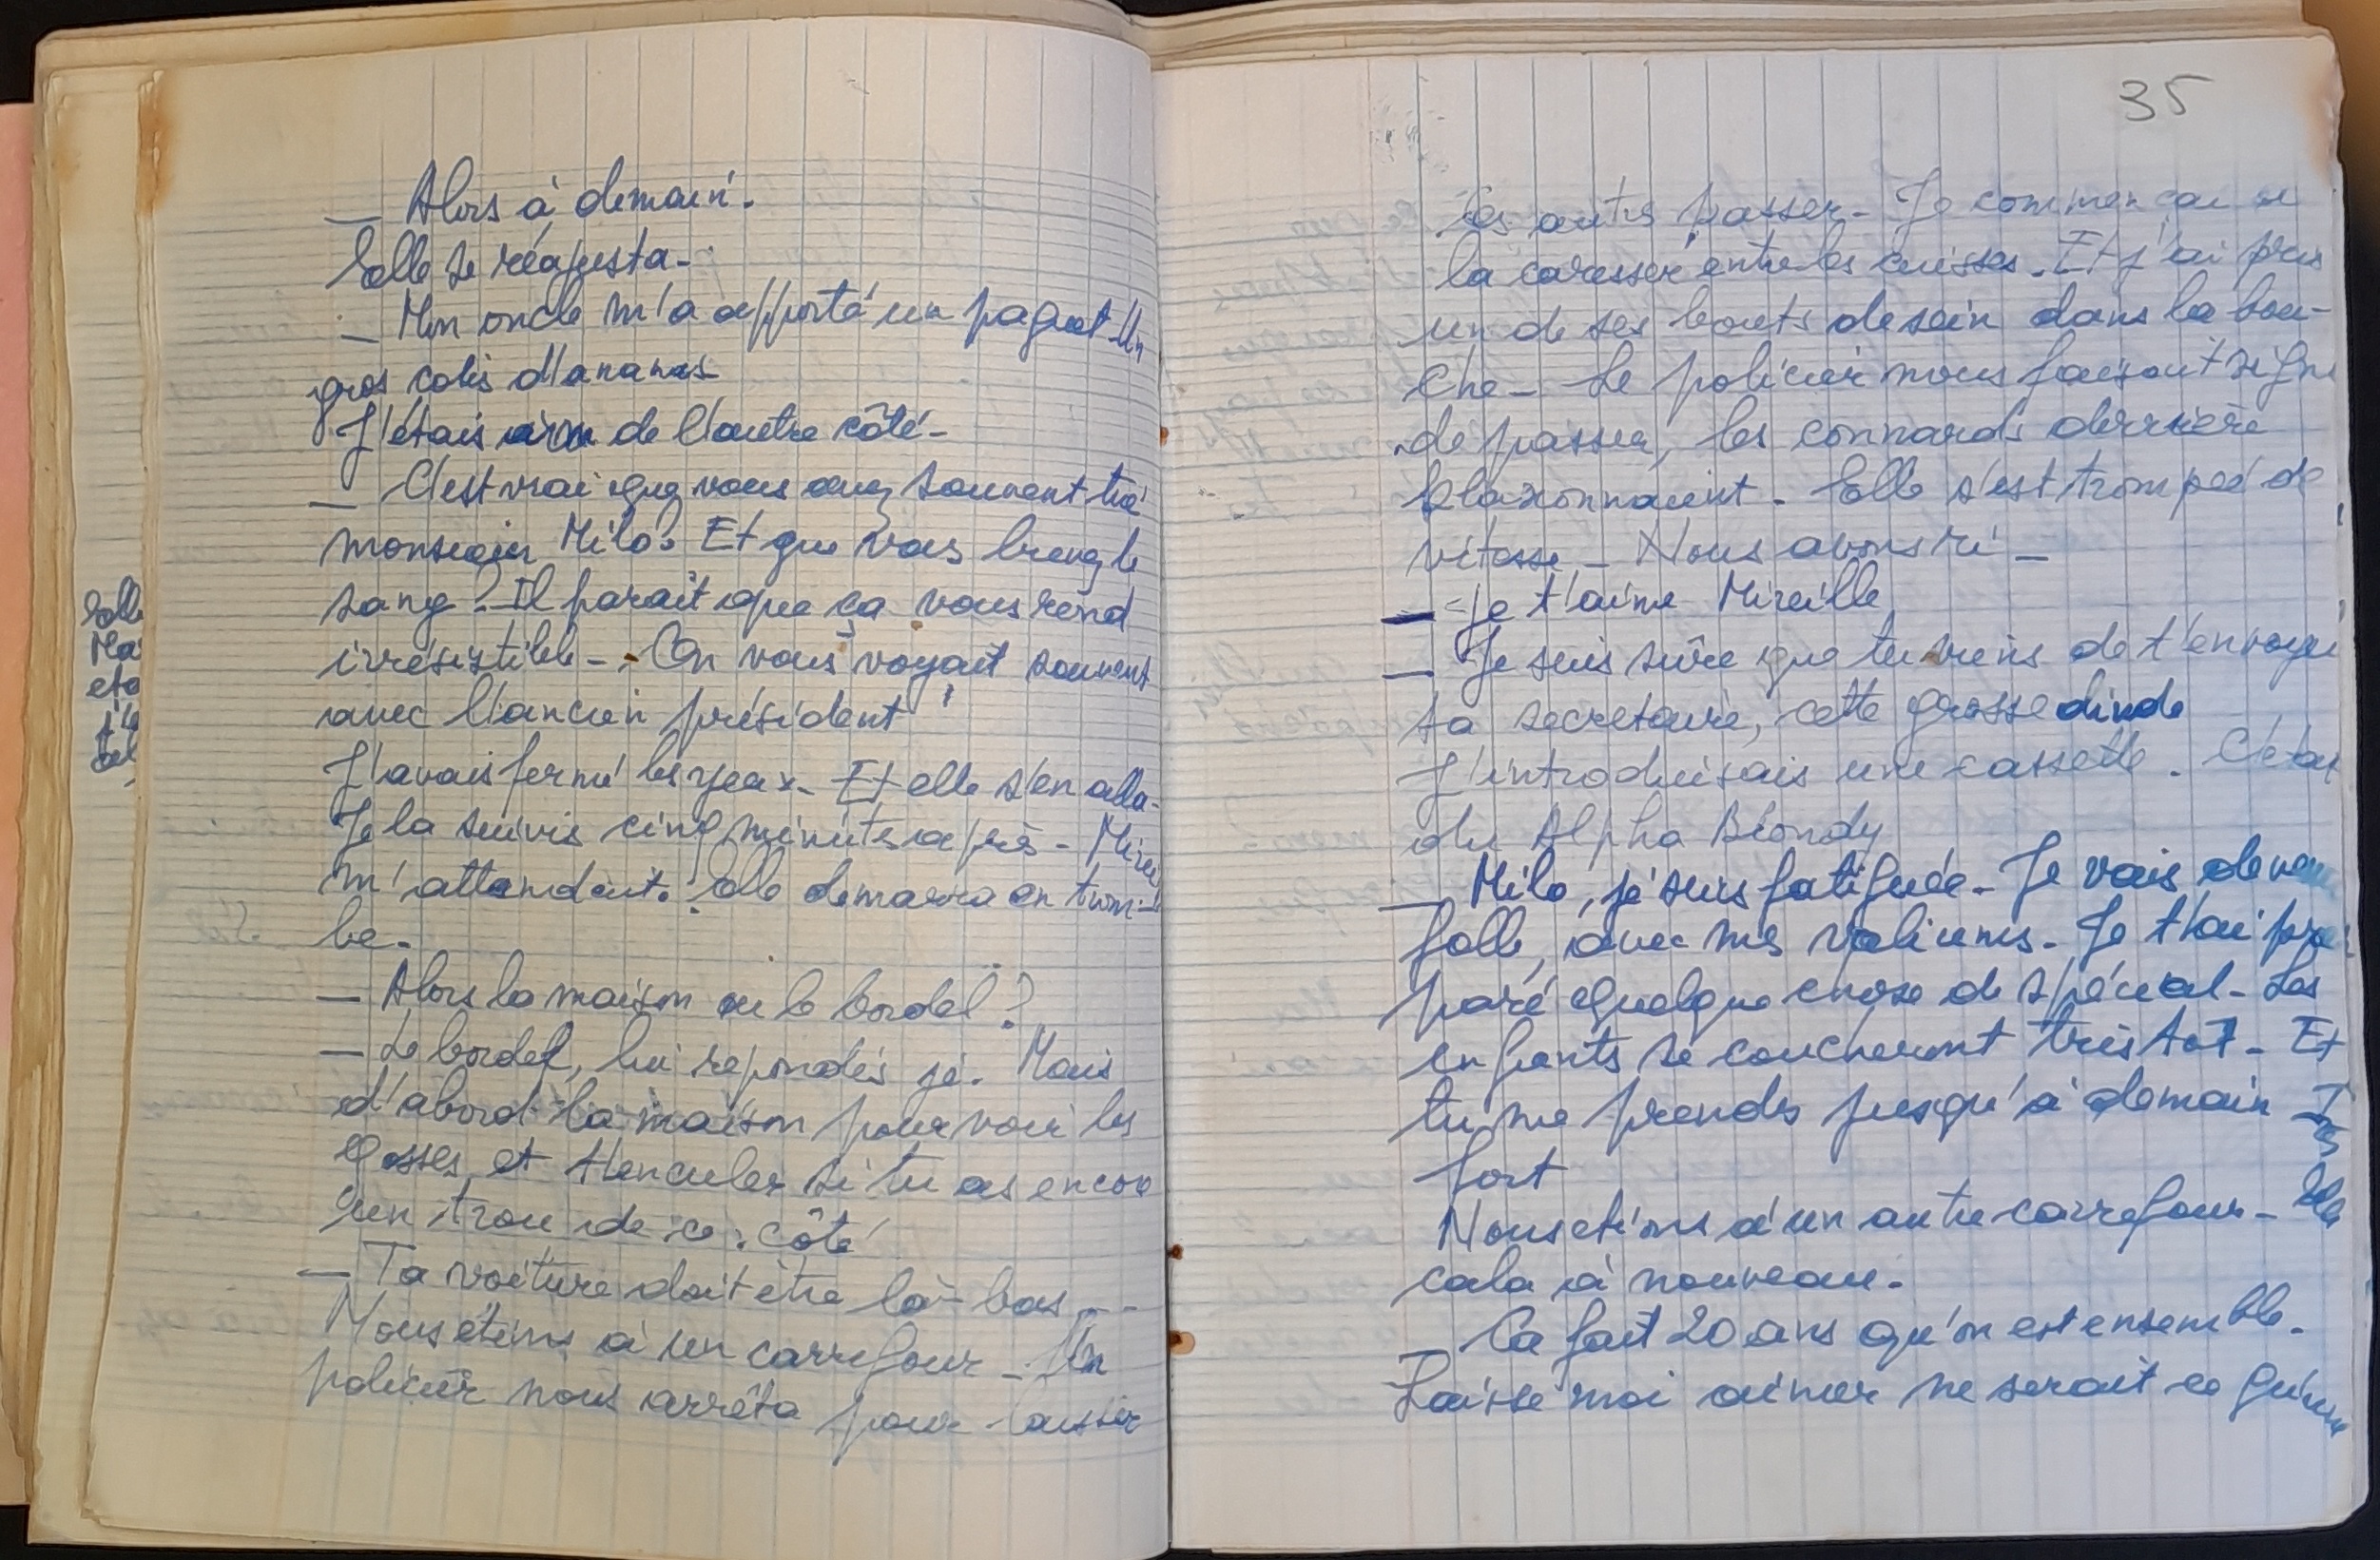 — Alors à demain.
Elle se réajusta.
— Mon oncle m'a apporté un paquet. Un
gros colis d'ananas
J'étais de l'autre côté.
— C'est vrai que vous avez souvent tué
monsieur Milo. Et que vous buvez le
sang ? Il parait que ça vous rend
irrésistible. On vous voyait souvent
avec l'ancien président
J'avais fermé les yeux. Et elle s'en alla.
Je la suivis cinq minutes après. Mirei
m'attendait. Elle demarra en trom-
be.
— Alors la maison ou le bordel ?
— Le bordel, lui repondis je. Mais
d'abord la maison pour voir les
gosses et t'enculer si tu as encore
un trou de ce côté
— Ta voiture doit être là-bas...
Nous étions à un carrefour. Un
policier nous arrêta pour laisser
Elle
Ma
eta
35
les autres passer. Je commençai à
la caresser entre les cuisses. Et j'ai pris
un de ses bouts de sein dans la bou-
che. Le policier nous faisait signe
de passer, les connards derrière
klaxonnaient. Elle s'est trompée de
vitesse. Nous avons ri.
— Je t'aime Mireille
— Je suis sûre que tu viens de t'envoyer
ta secretaire, cette grosse dinde
J'introduisais une cassette. C'était
du Alpha Blondy
— Milo, je suis fatiguée. Je vais devenir
folle, avec mes valiums. Je t'ai pré
paré quelque chose de spécial. Les
enfants se coucheront très tot. Et
tu me prends jusqu'à demain
fort
Nous etions à un autre carrefour. Elle
cala à nouveau.
— Ca fait 20 ans qu'on est ensemble.
Laisse moi aimer ne serait ce qu'une